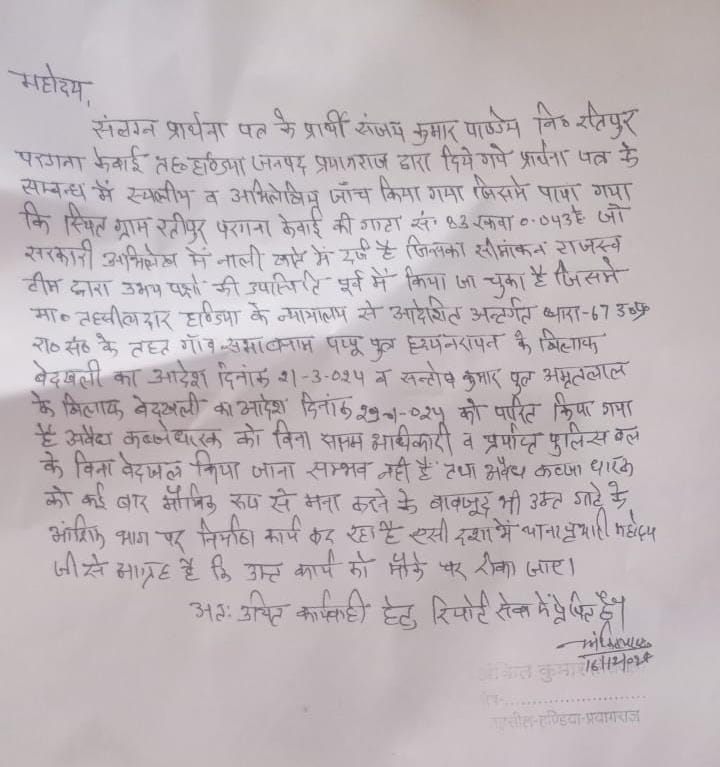 महोदय,
संलग्न प्रार्थना पत्र के प्रार्थी संजय कुमार पाण्डेय नि० रतिपुर
परगना केवाई तह० हण्डिया जनपद प्रयागराज द्वारा दिये गये प्रार्थना पत्र के
सम्बन्ध में स्थलीय व अभिलेखिय जाँच किया गया जिसमे पाया गया
कि स्थित ग्राम रतीपुर परगना केवाई की गाटा सं० 83 रकबा 0.043हे जो
सरकारी अभिलेख में नाली खाते में दर्ज है जिसका सीमांकन राजस्व
टीम द्वारा उभय पक्षो की उपस्थिति पूर्व में किया जा चुका है जिसमे
मा० तहसीलदार हण्डिया के न्यायालय से आदेशित अन्तर्गत धारा-67 उ०प्र
रा० सं० के तहत गाँव सभा बनाम पप्पू पुत्र के खिलाफ
बेदखली का आदेश दिनांक 21-3-024 व सन्तोष कुमार पुत्र अमृतलाल
के खिलाफ बेदखली का आदेश दिनांक को पारित किया गया
है अवैध कब्जेधारक को बिना सक्षम अधिकारी व प्रर्याप्त पुलिस बल
के बिना बेदखल किया जाना सम्भव नही है तथा अवैध कब्जा धारक
को कई बार मौखिक रूप से मना करने के बावजूद भी उक्त गाटे के
आंशिक भाग पर निर्माण कार्य कर रहा है एसी दशा में थाना प्रभारी महोदय
जी से आग्रह है कि उक्त कार्य को मौके पर रोका जाए।
अतः उचित कार्यवाही हेतु रिपोर्ट सेवा में प्रेषित है।
16/12/024
अंकित कुमार
तहसील-हण्डिया-प्रयागराज